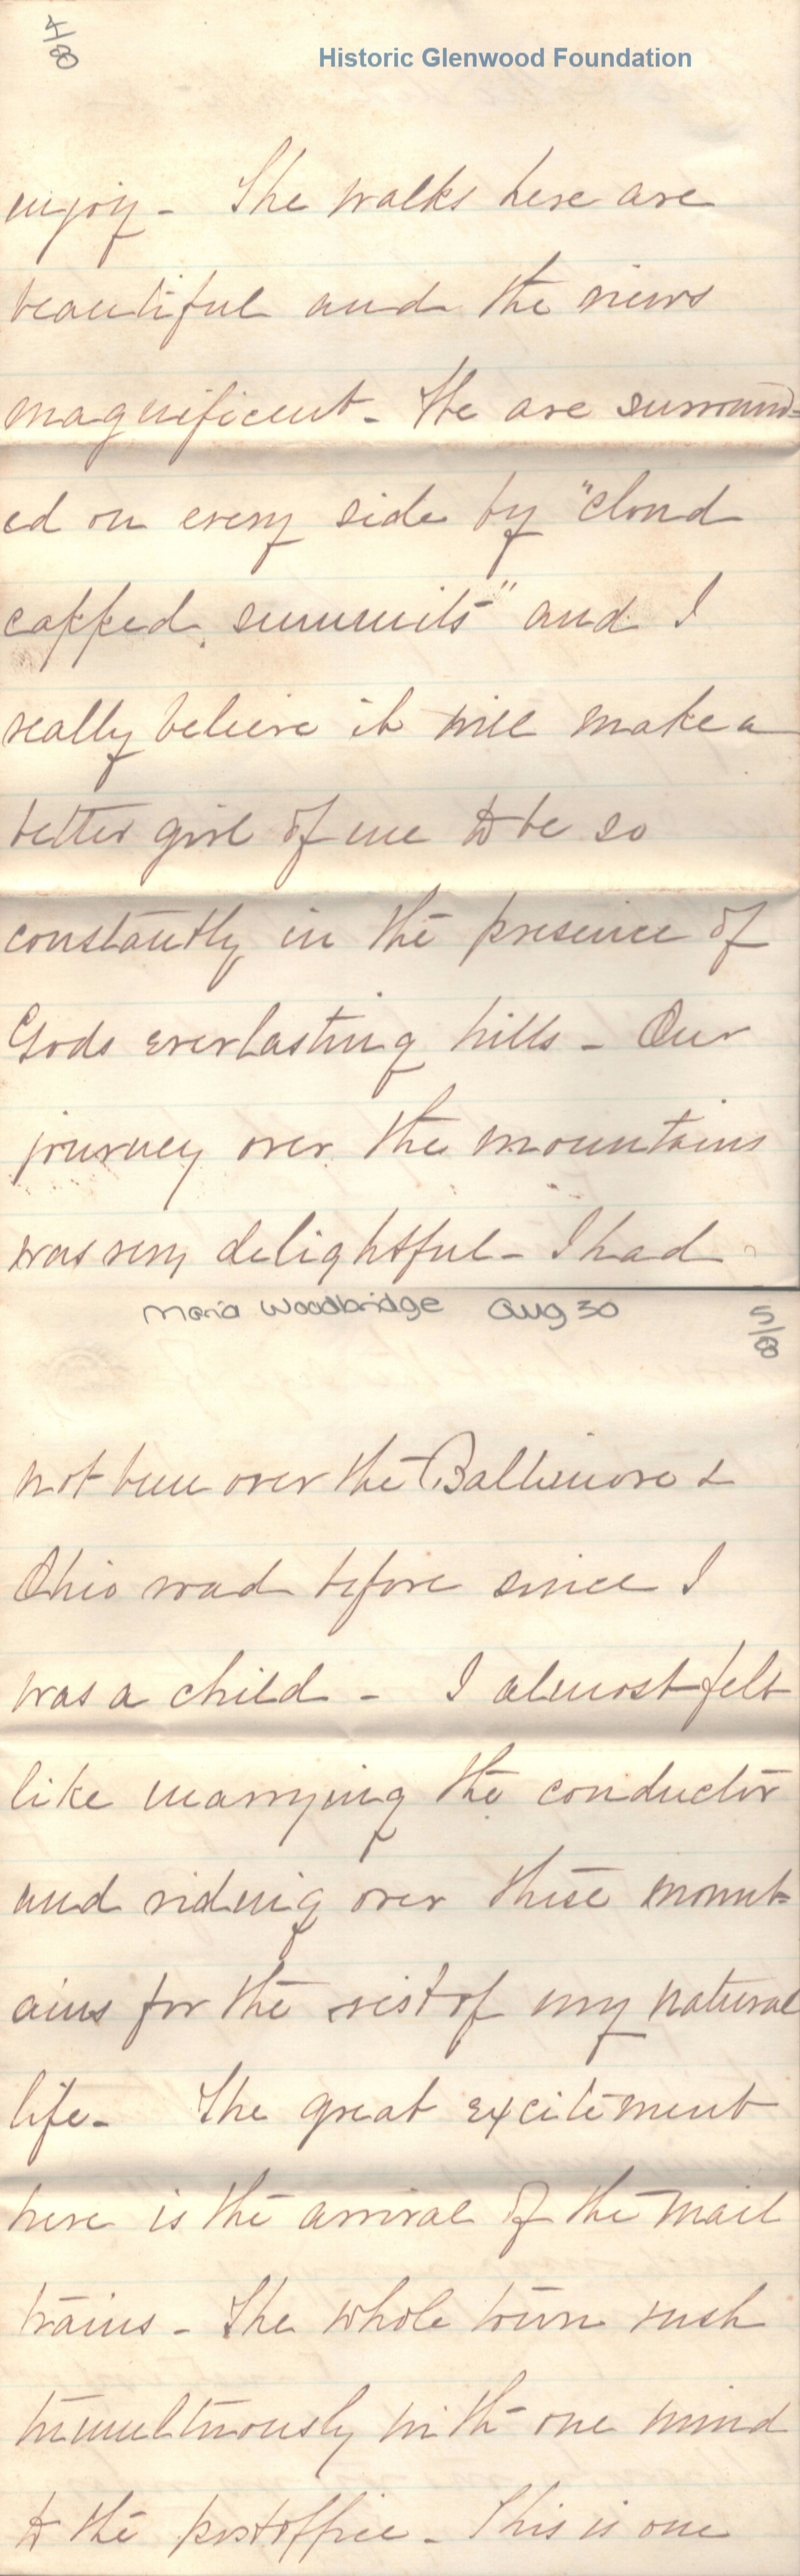 4/8
Historic Glenwood Foundation
enjoy - The walks here are
beautiful and the views
magnificent - We are surround=
ed on every side by "cloud
capped summits" and I
really believe it will make a
better girl of me to be so
constantly in the presence of
Gods everlasting hills - Our
journey over the mountains
was very delightful - I had
Maria Woodbridge Aug 30 5/8
not been over the Baltimore &
Ohio road before since I
was a child - I almost felt
like marrying the conductor
and riding over these mount=
ains for the rest of my natural
life - The great excitement
here is the arrival of the mail
trains - The whole town rush
tumultuously with one mind
to the postoffice - This is one